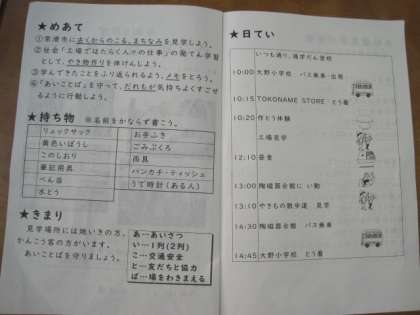 ★めあて
①常滑市に古くからのこる、まちなみを見学しよう。
②社会「工場ではたらく人々の仕事」の発てん学習
として、やき物作りを体けんしよう。
③学んできたことをふり返られるよう、メモをとろう。
④「あいことば」を守って、だれもが気持ちよくすごせ
るように行動しよう。
★持ち物 ※名前をかならず書こう。
リュックサック お茶ふき
黄色いぼうし ごみぶくろ
このしおり 雨具
筆記用具 ハンカチ・ティッシュ
べん当 うで時計(ある人)
水とう
★きまり
見学場所には地いきの方、
かんこう客の方がいます。
あいことばを守りましょう。
あ…あいさつ
い…1列(2列)
こ…交通安全
と…友だちと協力
ば…場をわきまえる
★日てい
いつも通り、通学だん登校
10:00 大野小学校 バス乗車・出発
10:15 TOKONAME STORE とう着
10:20 作とう体験
工場見学
12:10 昼食
13:00 陶磁器会館に い動
13:10 やきもの散歩道 見学
14:30 陶磁器会館 バス乗車
14:45 大野小学校 とう着